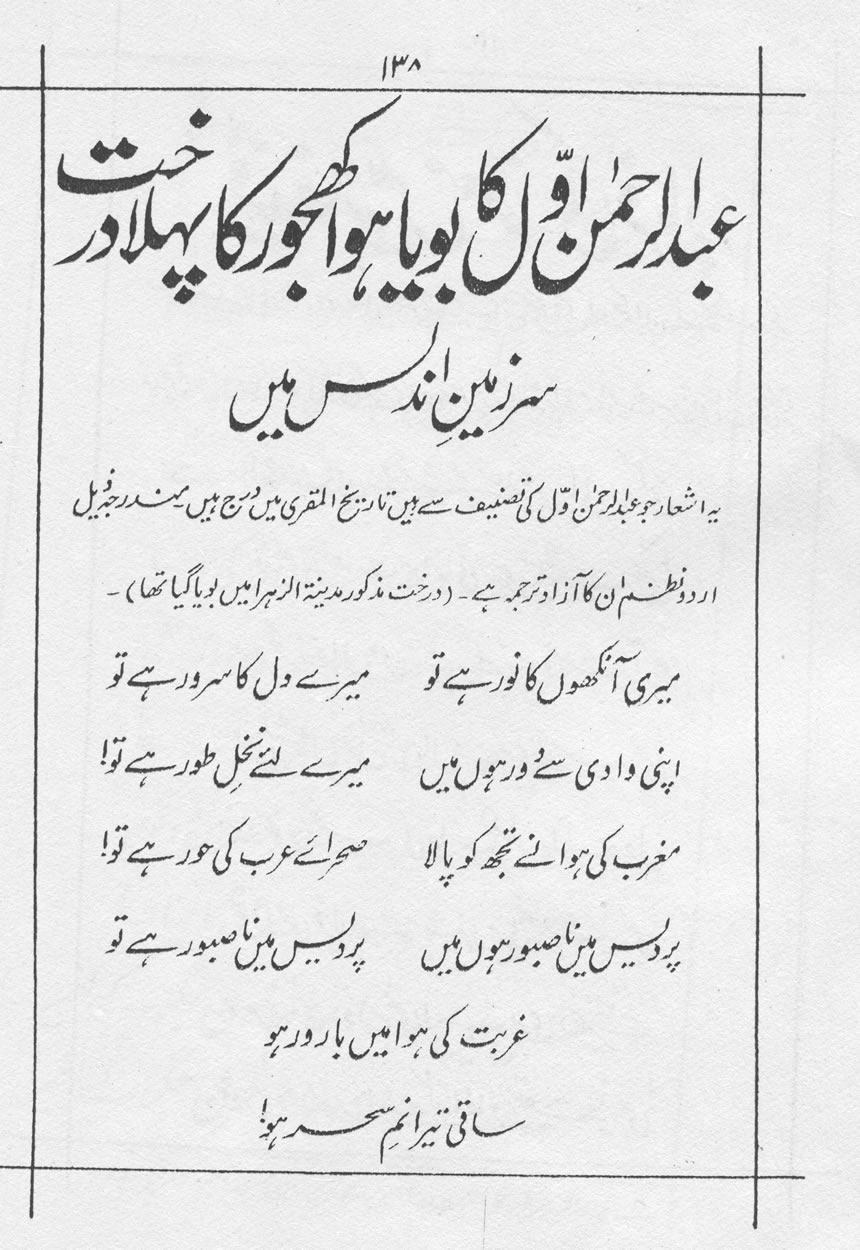 ۱۳۸
عبدالرحمٰن اوّل کا بویا ہوا کھجور کا پہلا درخت
سرزمینِ اندلس میں
یہ اشعار جو عبدالرحمٰن اوّل کی تصنیف سے ہیں تاریخ المقری میں درج ہیں۔ مندرجہ ذیل
اردو نظم ان کا آزاد ترجمہ ہے۔ (درخت مذکور مدینۃ الزہرا میں بویا گیا تھا)۔
میری آنکھوں کا نور ہے تو میرے دل کا سرور ہے تو
اپنی وادی سے دُور ہوں میں میرے لئے نخلِ طور ہے تو!
مغرب کی ہوا نے تجھ کو پالا صحرائے عرب کی حور ہے تو!
پردیس میں ناصبور ہوں میں پردیس میں ناصبور ہے تو
غربت کی ہوا میں بارور ہو
ساقی تیرا نمِ سحر ہو!